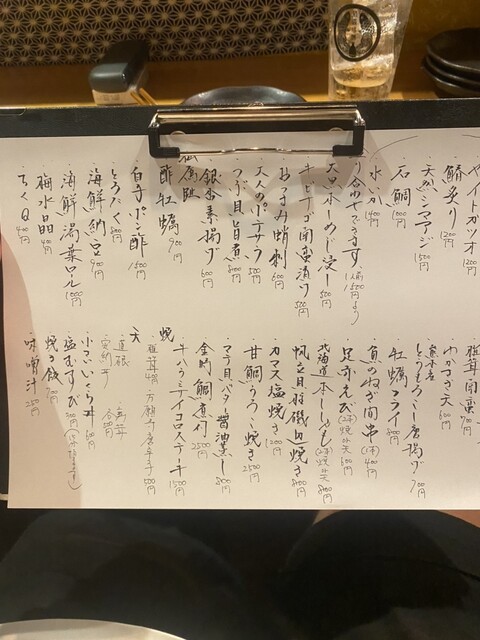 ケイトガツオ 1200円
鯖炙り 1200円
天然シマアジ 1500円
石鯛 1500円
水いか 1400円
り合わせできます (1人前)1500円より
大田ホーめド浸し 500円
キビナゴ 500円
おつまみ蛸刺 600円
大人のポテサラ 500円
つぶ貝旨煮 800円
銀杏素揚げ 600円
酢牡蠣 900円
白子ポン酢 1500円
とろたく 800円
海鮮納豆 900円
海鮮湯葉ロール 1000円
梅水晶 400円
ちくQ 400円
椎茸 700円
わかさぎ天 600円
とうもろこし唐揚げ 700円
牡蠣フライ 800円
魚のねぎ間串 (1本)400円
足赤えび(2本)焼or天 600円
北海道本ししゃも(2本)焼or天 800円
帆立貝殻磯辺焼き 800円
カマス塩焼き 1200円
甘鯛うろこ焼き 2500円
マテ貝バター醤油蒸し 800円
金時鯛煮付 2500円
牛ハラミサイコロステーキ 1500円
焼
天
椎茸 400円 万願寺唐辛子 500円
小さいいくら丼 600円
塩むすび 300円
焼お餅 700円
味噌汁 250円